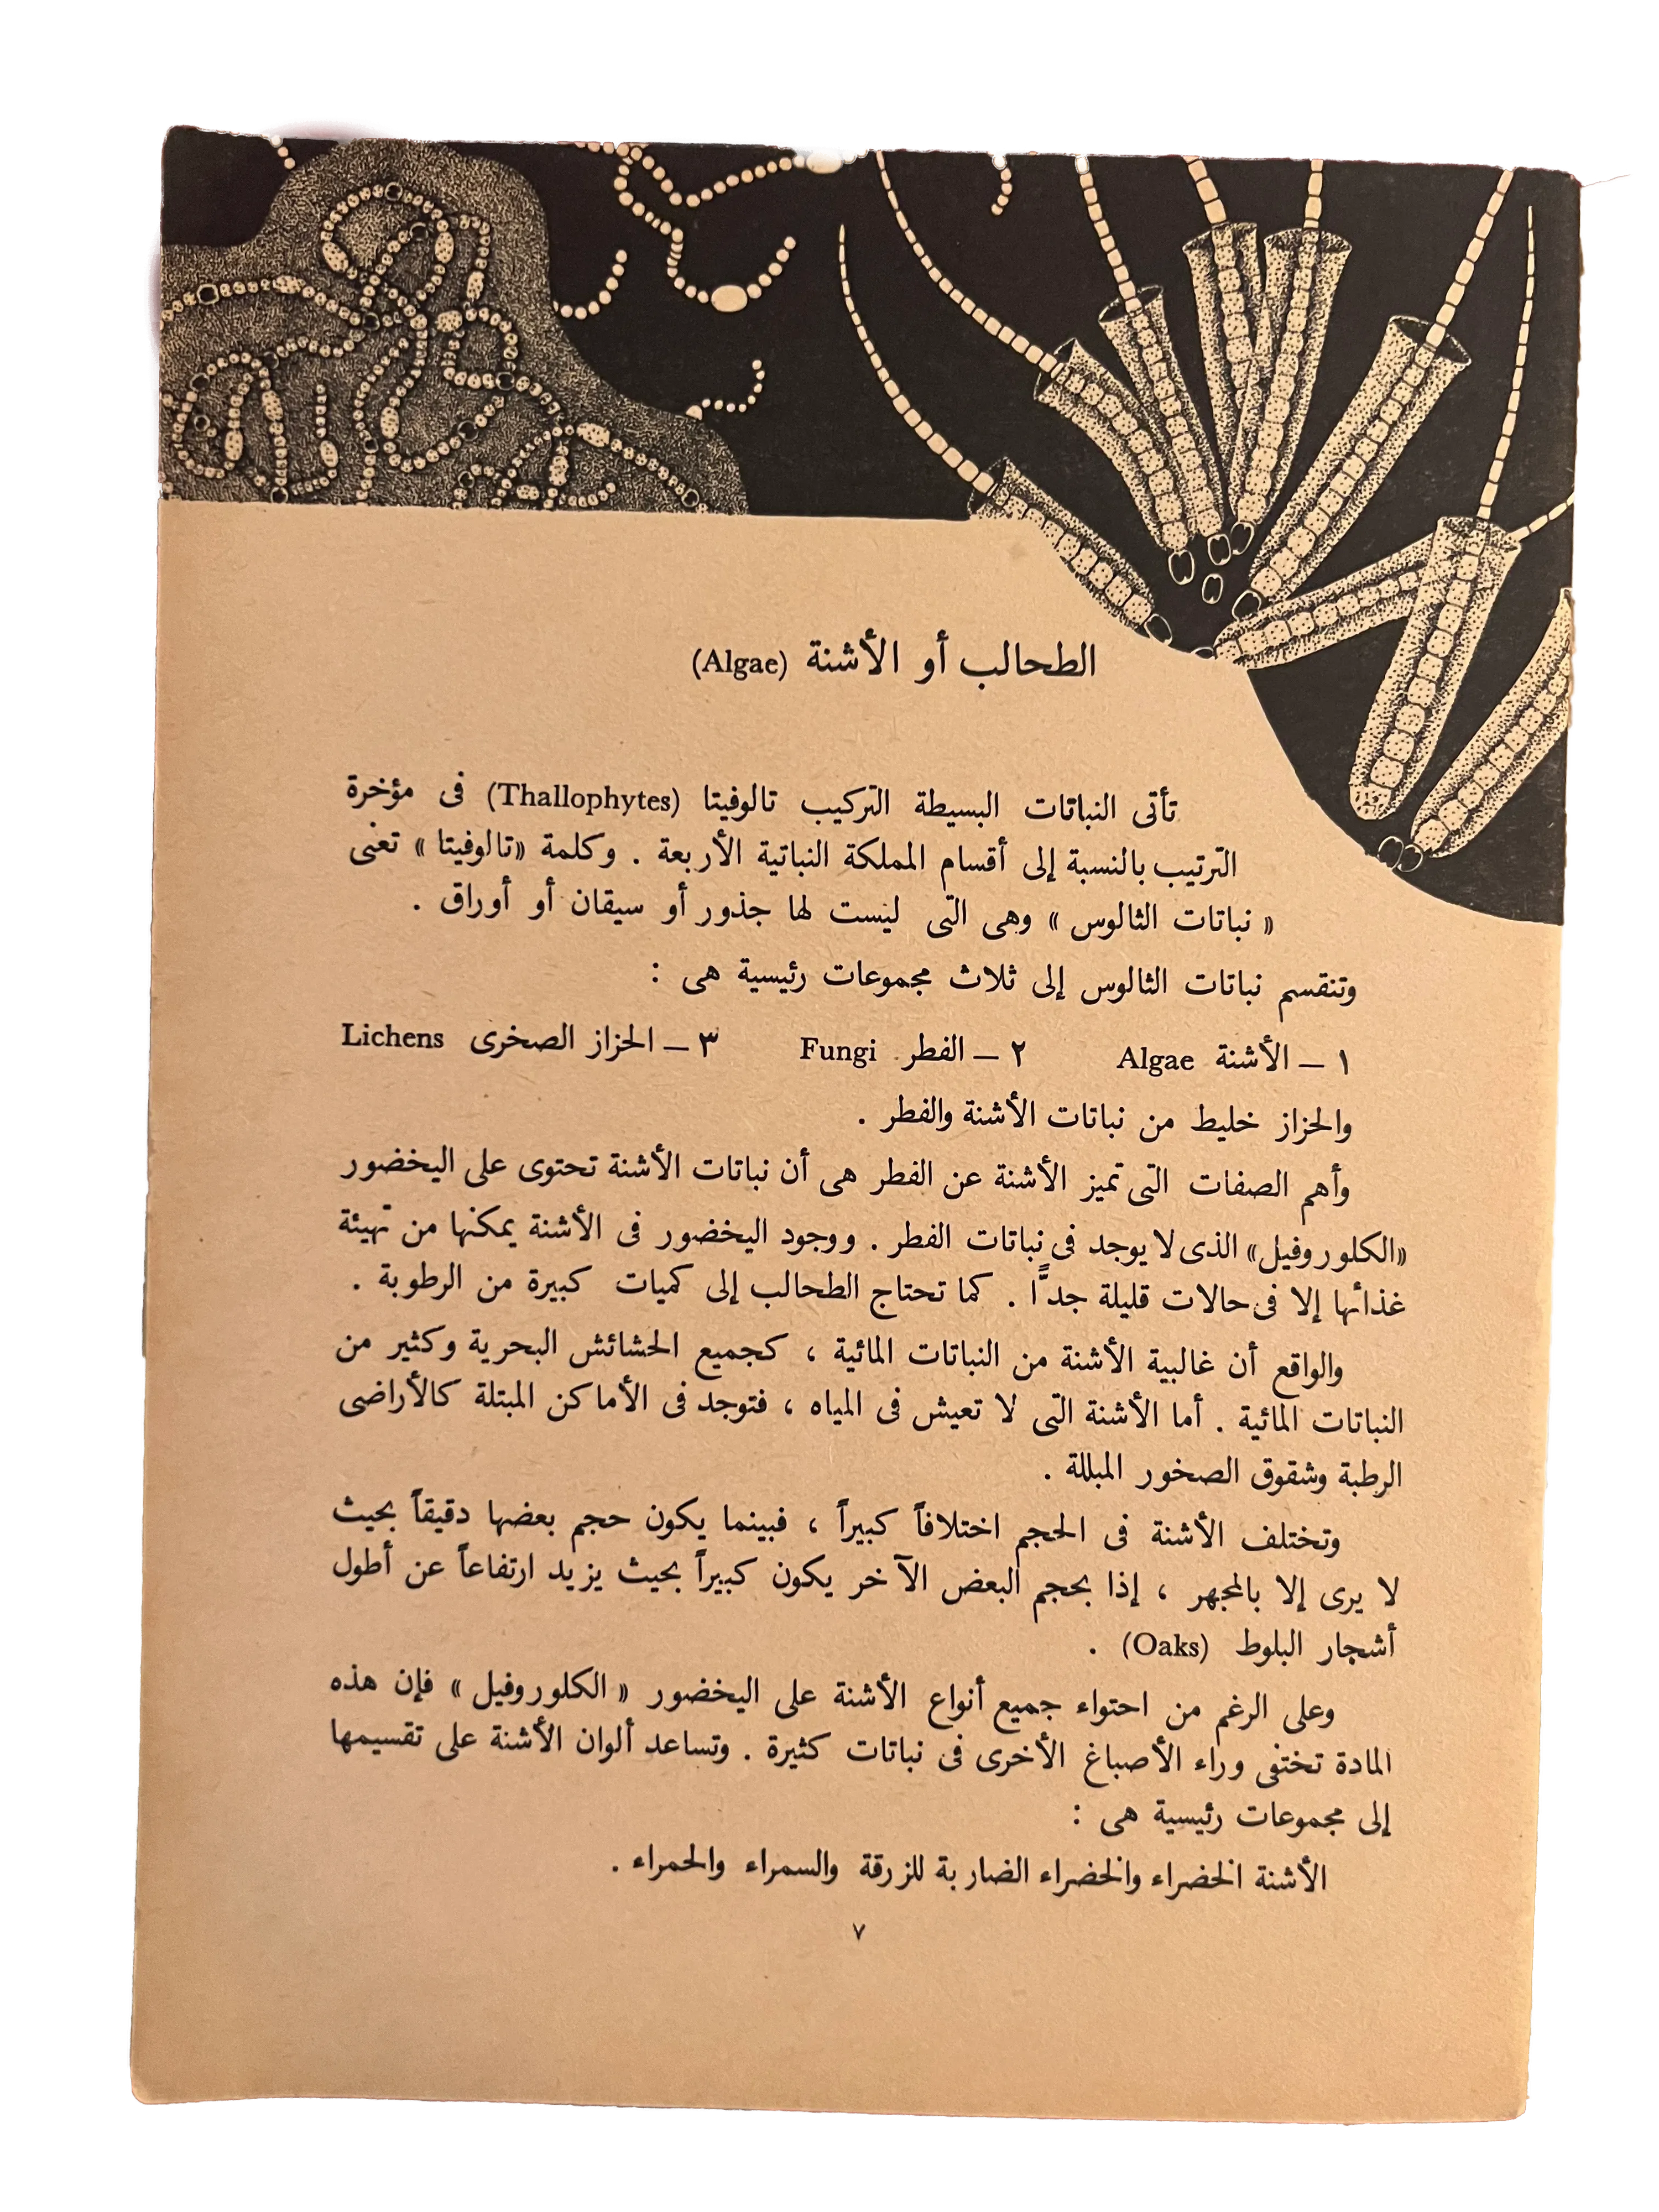 الطحالب أو الأشنة (Algae)
تأتى النباتات البسيطة التركيب تالوفيتا (Thallophytes) فى مؤخرة
الترتيب بالنسبة إلى أقسام المملكة النباتية الأربعة . وكلمة «تالوفيتا » تعنى
« نباتات الثالوس » وهى التى ليست لها جذور أو سيقان أو أوراق .
وتنقسم نباتات الثالوس إلى ثلاث مجموعات رئيسية هى :
١ – الأشنة Algae ٢ – الفطر Fungi ٣ – الحزاز الصخرى Lichens
والحزاز خليط من نباتات الأشنة والفطر .
وأهم الصفات التى تميز الأشنة عن الفطر هى أن نباتات الأشنة تحتوى على اليخضور
«الكلوروفيل» الذى لا يوجد فى نباتات الفطر . ووجود اليخضور فى الأشنة يمكنها من تهيئة
غذائها إلا فى حالات قليلة جدًّا . كما تحتاج الطحالب إلى كميات كبيرة من الرطوبة .
والواقع أن غالبية الأشنة من النباتات المائية ، كجميع الحشائش البحرية وكثير من
النباتات المائية . أما الأشنة التى لا تعيش فى المياه ، فتوجد فى الأماكن المبتلة كالأراضى
الرطبة وشقوق الصخور المبللة .
وتختلف الأشنة فى الحجم اختلافاً كبيراً ، فبينما يكون حجم بعضها دقيقاً بحيث
لا يرى إلا بالمجهر ، إذا بحجم البعض الآخر يكون كبيراً بحيث يزيد ارتفاعاً عن أطول
أشجار البلوط (Oaks) .
وعلى الرغم من احتواء جميع أنواع الأشنة على اليخضور « الكلوروفيل » فإن هذه
المادة تختفى وراء الأصباغ الأخرى فى نباتات كثيرة . وتساعد ألوان الأشنة على تقسيمها
إلى مجموعات رئيسية هى :
الأشنة الخضراء والخضراء الضاربة للزرقة والسمراء والحمراء .
٧